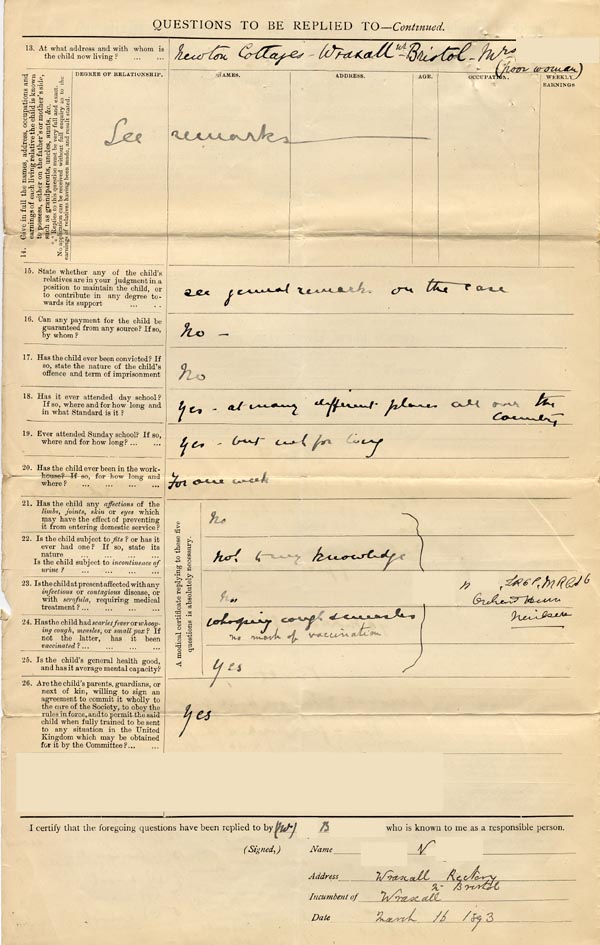 QUESTIONS TO BE REPLIED TO—Continued.
13. At what address and with whom is
the child now living? ... ...
Newton Cottages - Wraxall nr Bristol - Mrs
(poor woman)
14. Give in full the names, address, occupations and
earnings of each living relative the child is known
to possess, either on the father's or mother's side,
such as grandparents, uncles, aunts, &c.
*** Replies to this question must be very full and exact.
No application can be received without full enquiry as to the
earnings of relatives having been made, and result stated.
DEGREE OF RELATIONSHIP.
NAMES.
ADDRESS.
AGE.
OCCUPATION.
WEEKLY
EARNINGS
See remarks
15. State whether any of the child's
relatives are in your judgment in a
position to maintain the child, or
to contribute in any degree to-
wards its support ... ..
see general remarks on the case
16. Can any payment for the child be
guaranteed from any source? If so,
by whom?
No -
17. Has the child ever been convicted? If
so, state the nature of the child's
offence and term of imprisonment
No
18. Has it ever attended day school?
If so, where and for how long and
in what Standard is it?
Yes - at many different places all over the
country
19. Ever attended Sunday school? If so,
where and for how long? ... ...
Yes - but not for long
20. Has the child ever been in the work-
house? If so, for how long and
where? ... ... ... ...
For one week
A medical certificate replying to these five
questions is absolutely necessary.
21. Has the child any affections of the
limbs, joints, skin or eyes which
may have the effect of preventing
it from entering domestic service?
No
22. Is the child subject to fits? or has it
ever had one? If so, state its
nature ... ... ... ...
Is the child subject to incontinence of
urine? ... ... ... ...
Not to my knowledge
23. Is the child at present affected with any
infectious or contagious disease, or
with scrofula, requiring medical
treatment? ... ... ...
No
24. Has the child had scarlet fever or whoop-
ing cough, measles, or small pox? If
not the latter, has it been
vaccinated? ... ... ...
Whooping cough & measles
no mark of vaccination
25. Is the child's general health good,
and has it average mental capacity?
Yes
26. Are the child's parents, guardians, or
next of kin, willing to sign an
agreement to commit it wholly to
the care of the Society, to obey the
rules in force, and to permit the said
child when fully trained to be sent
to any situation in the United
Kingdom which may be obtained
for it by the Committee? ... ...
Yes
I certify that the foregoing questions have been replied to by (Mr) B who is known to me as a responsible person.
(Signed,) Name V
Address Wraxall Rectory
nr Bristol
Incumbent of Wraxall
Date March 16 1893